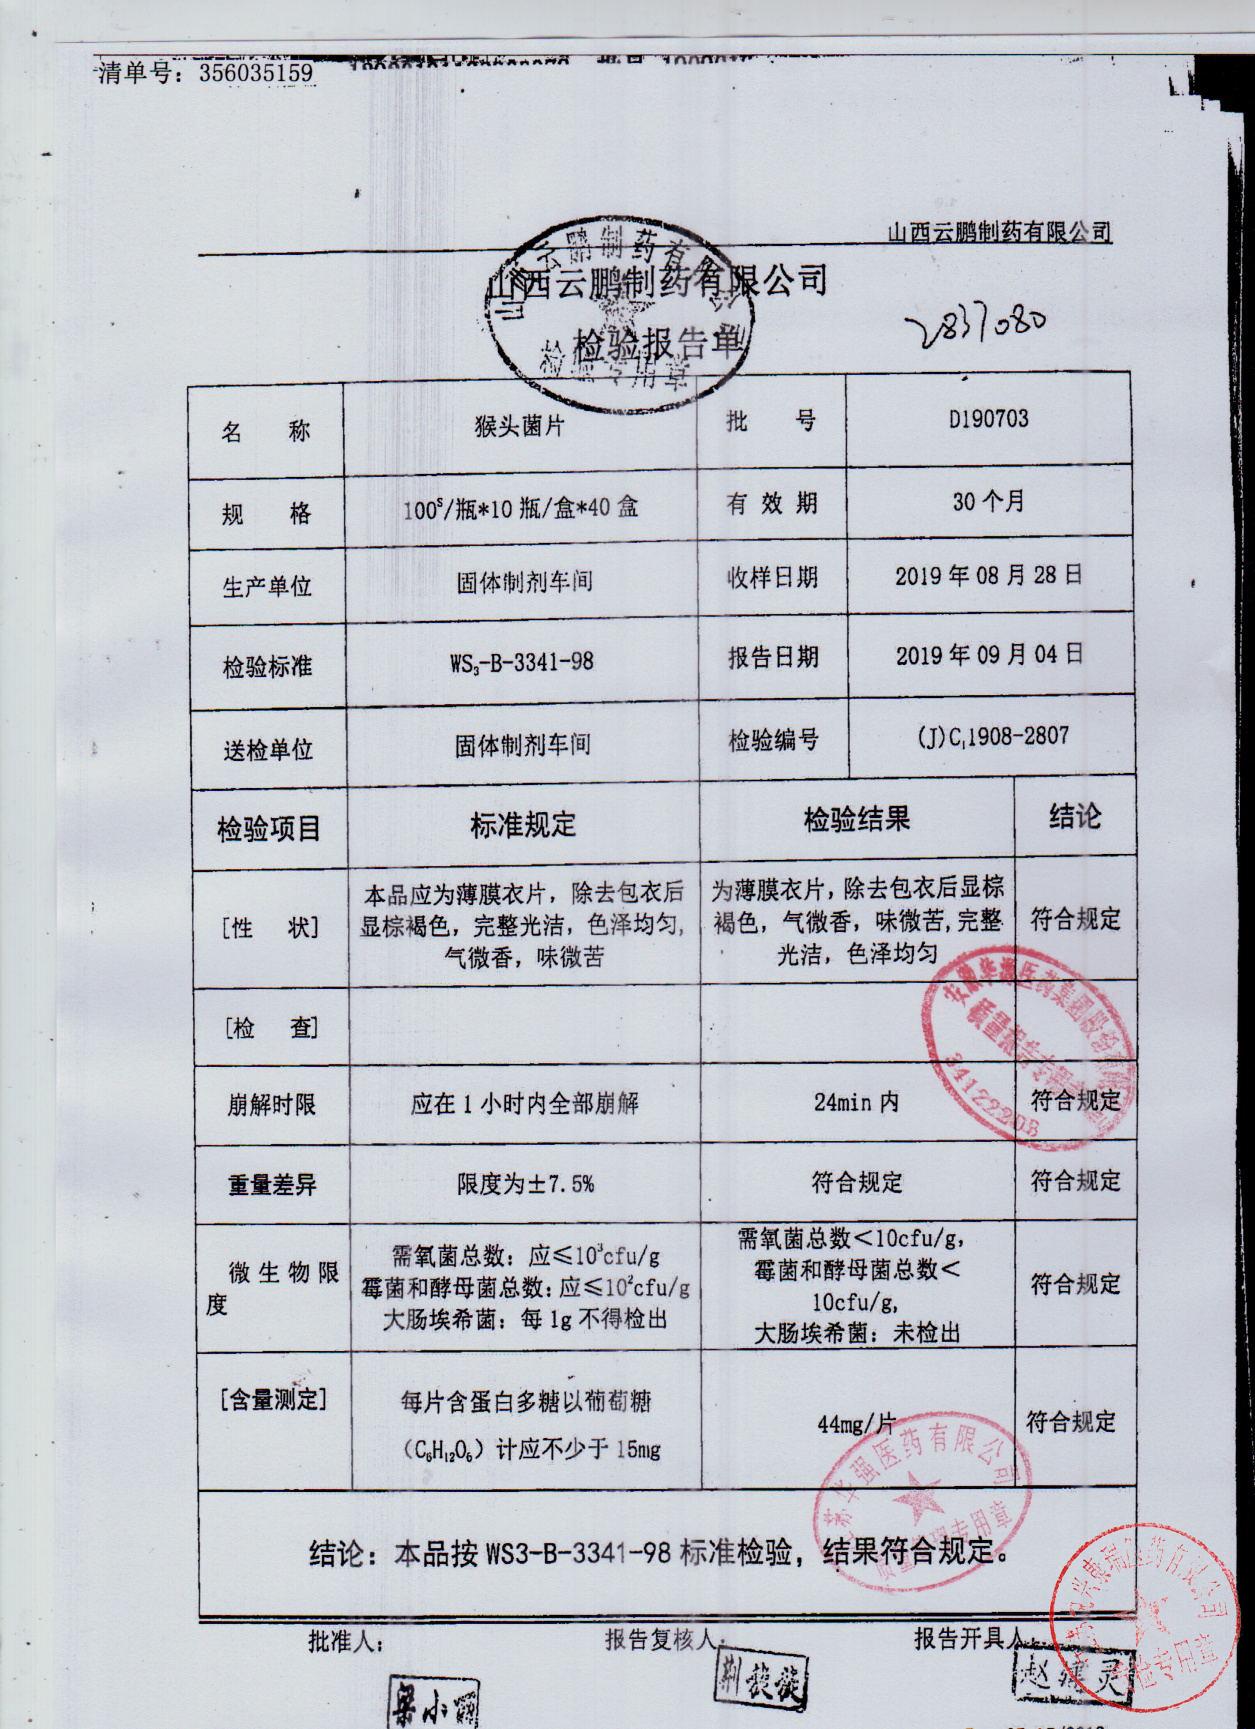 清单号：356035159
山西云鹏制药有限公司
山西云鹏制药有限公司
检验报告单
2837080
名 称 猴头菌片 批 号 D190703
规 格 100ˢ/瓶*10瓶/盒*40盒 有 效 期 30个月
生产单位 固体制剂车间 收样日期 2019年08月28日
检验标准 WS₃-B-3341-98 报告日期 2019年09月04日
送检单位 固体制剂车间 检验编号 (J)C₁1908-2807
检验项目 标准规定 检验结果 结论
[性 状]
本品应为薄膜衣片，除去包衣后
显棕褐色，完整光洁，色泽均匀，
气微香，味微苦
为薄膜衣片，除去包衣后显棕
褐色，气微香，味微苦，完整
光洁，色泽均匀
符合规定
[检 查]
崩解时限 应在1小时内全部崩解 24min内 符合规定
重量差异 限度为±7.5% 符合规定 符合规定
微生物限
度
需氧菌总数：应≤10³cfu/g
霉菌和酵母菌总数：应≤10²cfu/g
大肠埃希菌：每1g不得检出
需氧菌总数＜10cfu/g，
霉菌和酵母菌总数＜
10cfu/g，
大肠埃希菌：未检出
符合规定
[含量测定]
每片含蛋白多糖以葡萄糖
（C₆H₁₂O₆）计应不少于15mg
44mg/片
符合规定
结论：本品按WS3-B-3341-98标准检验，结果符合规定。
批准人： 报告复核人： 报告开具人：
山西云鹏制药有限公司
检验专用章